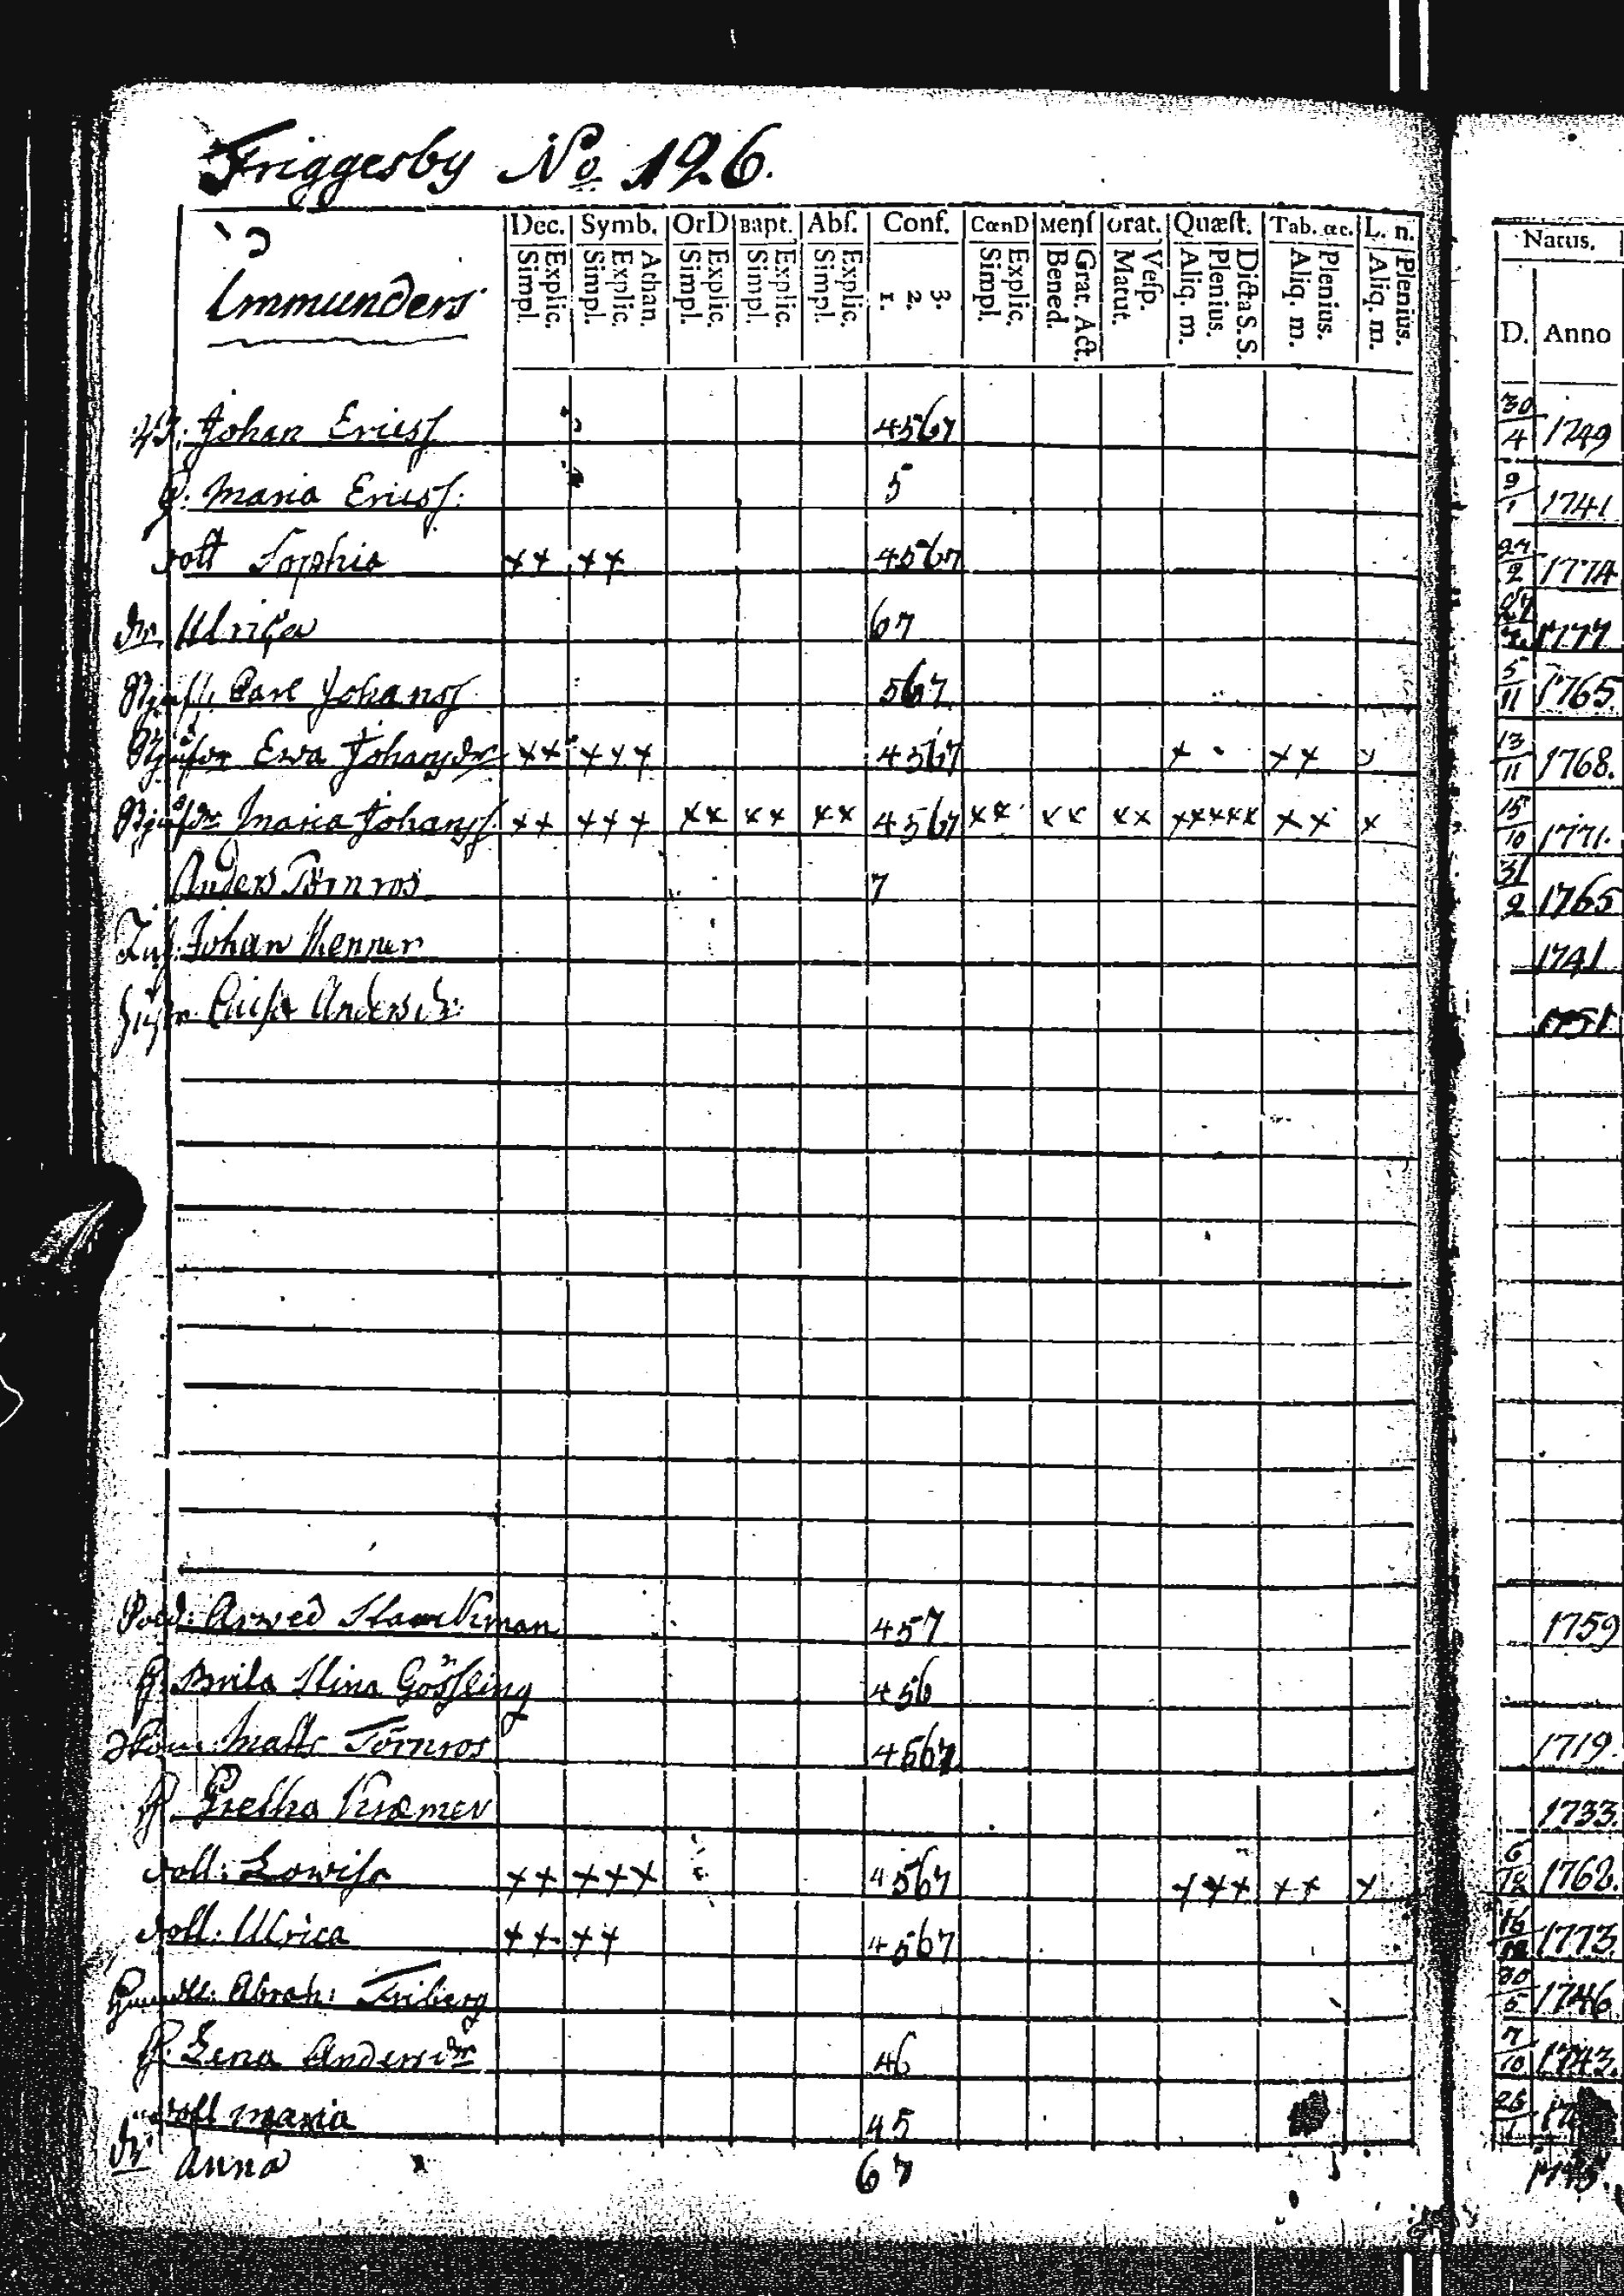 Friggesby No 126.
Dec. Symb. OrD Bapt. Abſ. Conf. CœnD Menſ Orat. Quæſt. Tab. œc. L. n. Natus.
Immunders
Simpl. Explic. Simpl. Explic. Athan. Simpl. Explic. Simpl. Explic. Simpl. Explic. 1. 2. 3. Simpl. Explic. Bened. Grat. Act. Matut. Veſp. Aliq. m. Plenius. Dicta S. S. Aliq. m. Plenius. Aliq. m. Plenius. D. Anno
Johan Ericsſ 4567 30/4 1749
h. Maria Ericsſ: 5 9/1 1741
dott Sophia ++ ++ 4567 27/2 1774
dr Ulrica 67 1777
Carl Johansſ 567 5/11 1765.
Ewa Johansdr ++ +++ 4567 + ++ + 13/11 1768.
Maria Johansſ ++ +++ ×× ×× ×× 4567 ×× ×× ×× ××××× ×× × 15/10 1771.
Anders Törnros 7 31/2 1765
Inh. Johan Renner 1741
Caisa Andersdr 1751
Arwed Starckman 457 1759
h. Brita Stina Gösſling 456
Matts Törnros 4567 1719.
h Gretha Kræmer 1733.
doll: Lowisa ++ +++ 4567 +++ ++ + 1762.
doll: Ulrica ++ ++ 4567 1773
Abrah: Friberg 30/5 1746
h. Lena Andersdr 46 7/10 1743.
doll Maria 45 26/1
dr Anna 67